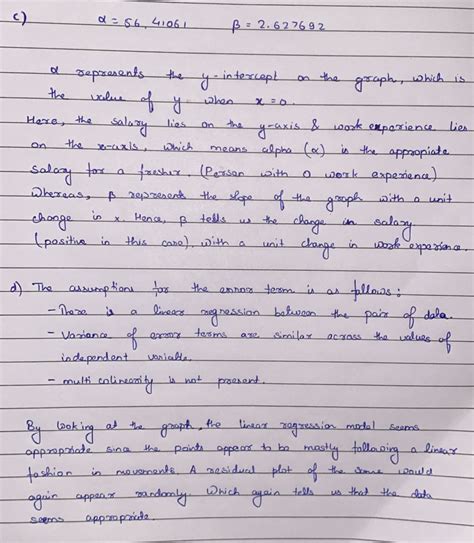 c) α = 56.41061 β = 2.627692
α represents the y-intercept on the graph, which is
the value of y when x=0.
Here, the salary lies on the y-axis & work experience lies
on the x-axis, which means alpha (α) is the appropiate
salary for a fresher. (Person with 0 work experience)
Whereas, β represents the slope of the graph with a unit
change in x. Hence, β tells us the change in salary
(positive in this case), with a unit change in work experience.
d) The assumptions for the error term is as follows:
- There is a linear regression between the pair of data.
- Variance of error terms are similar across the values of
independent variable.
- multi colinearity is not present.
By looking at the graph, the linear regression model seems
appropriate since the points appear to be mostly following a linear
fashion in movements. A residual plot of the same would
again appear randomly. Which again tells us that the data
seems appropriate.